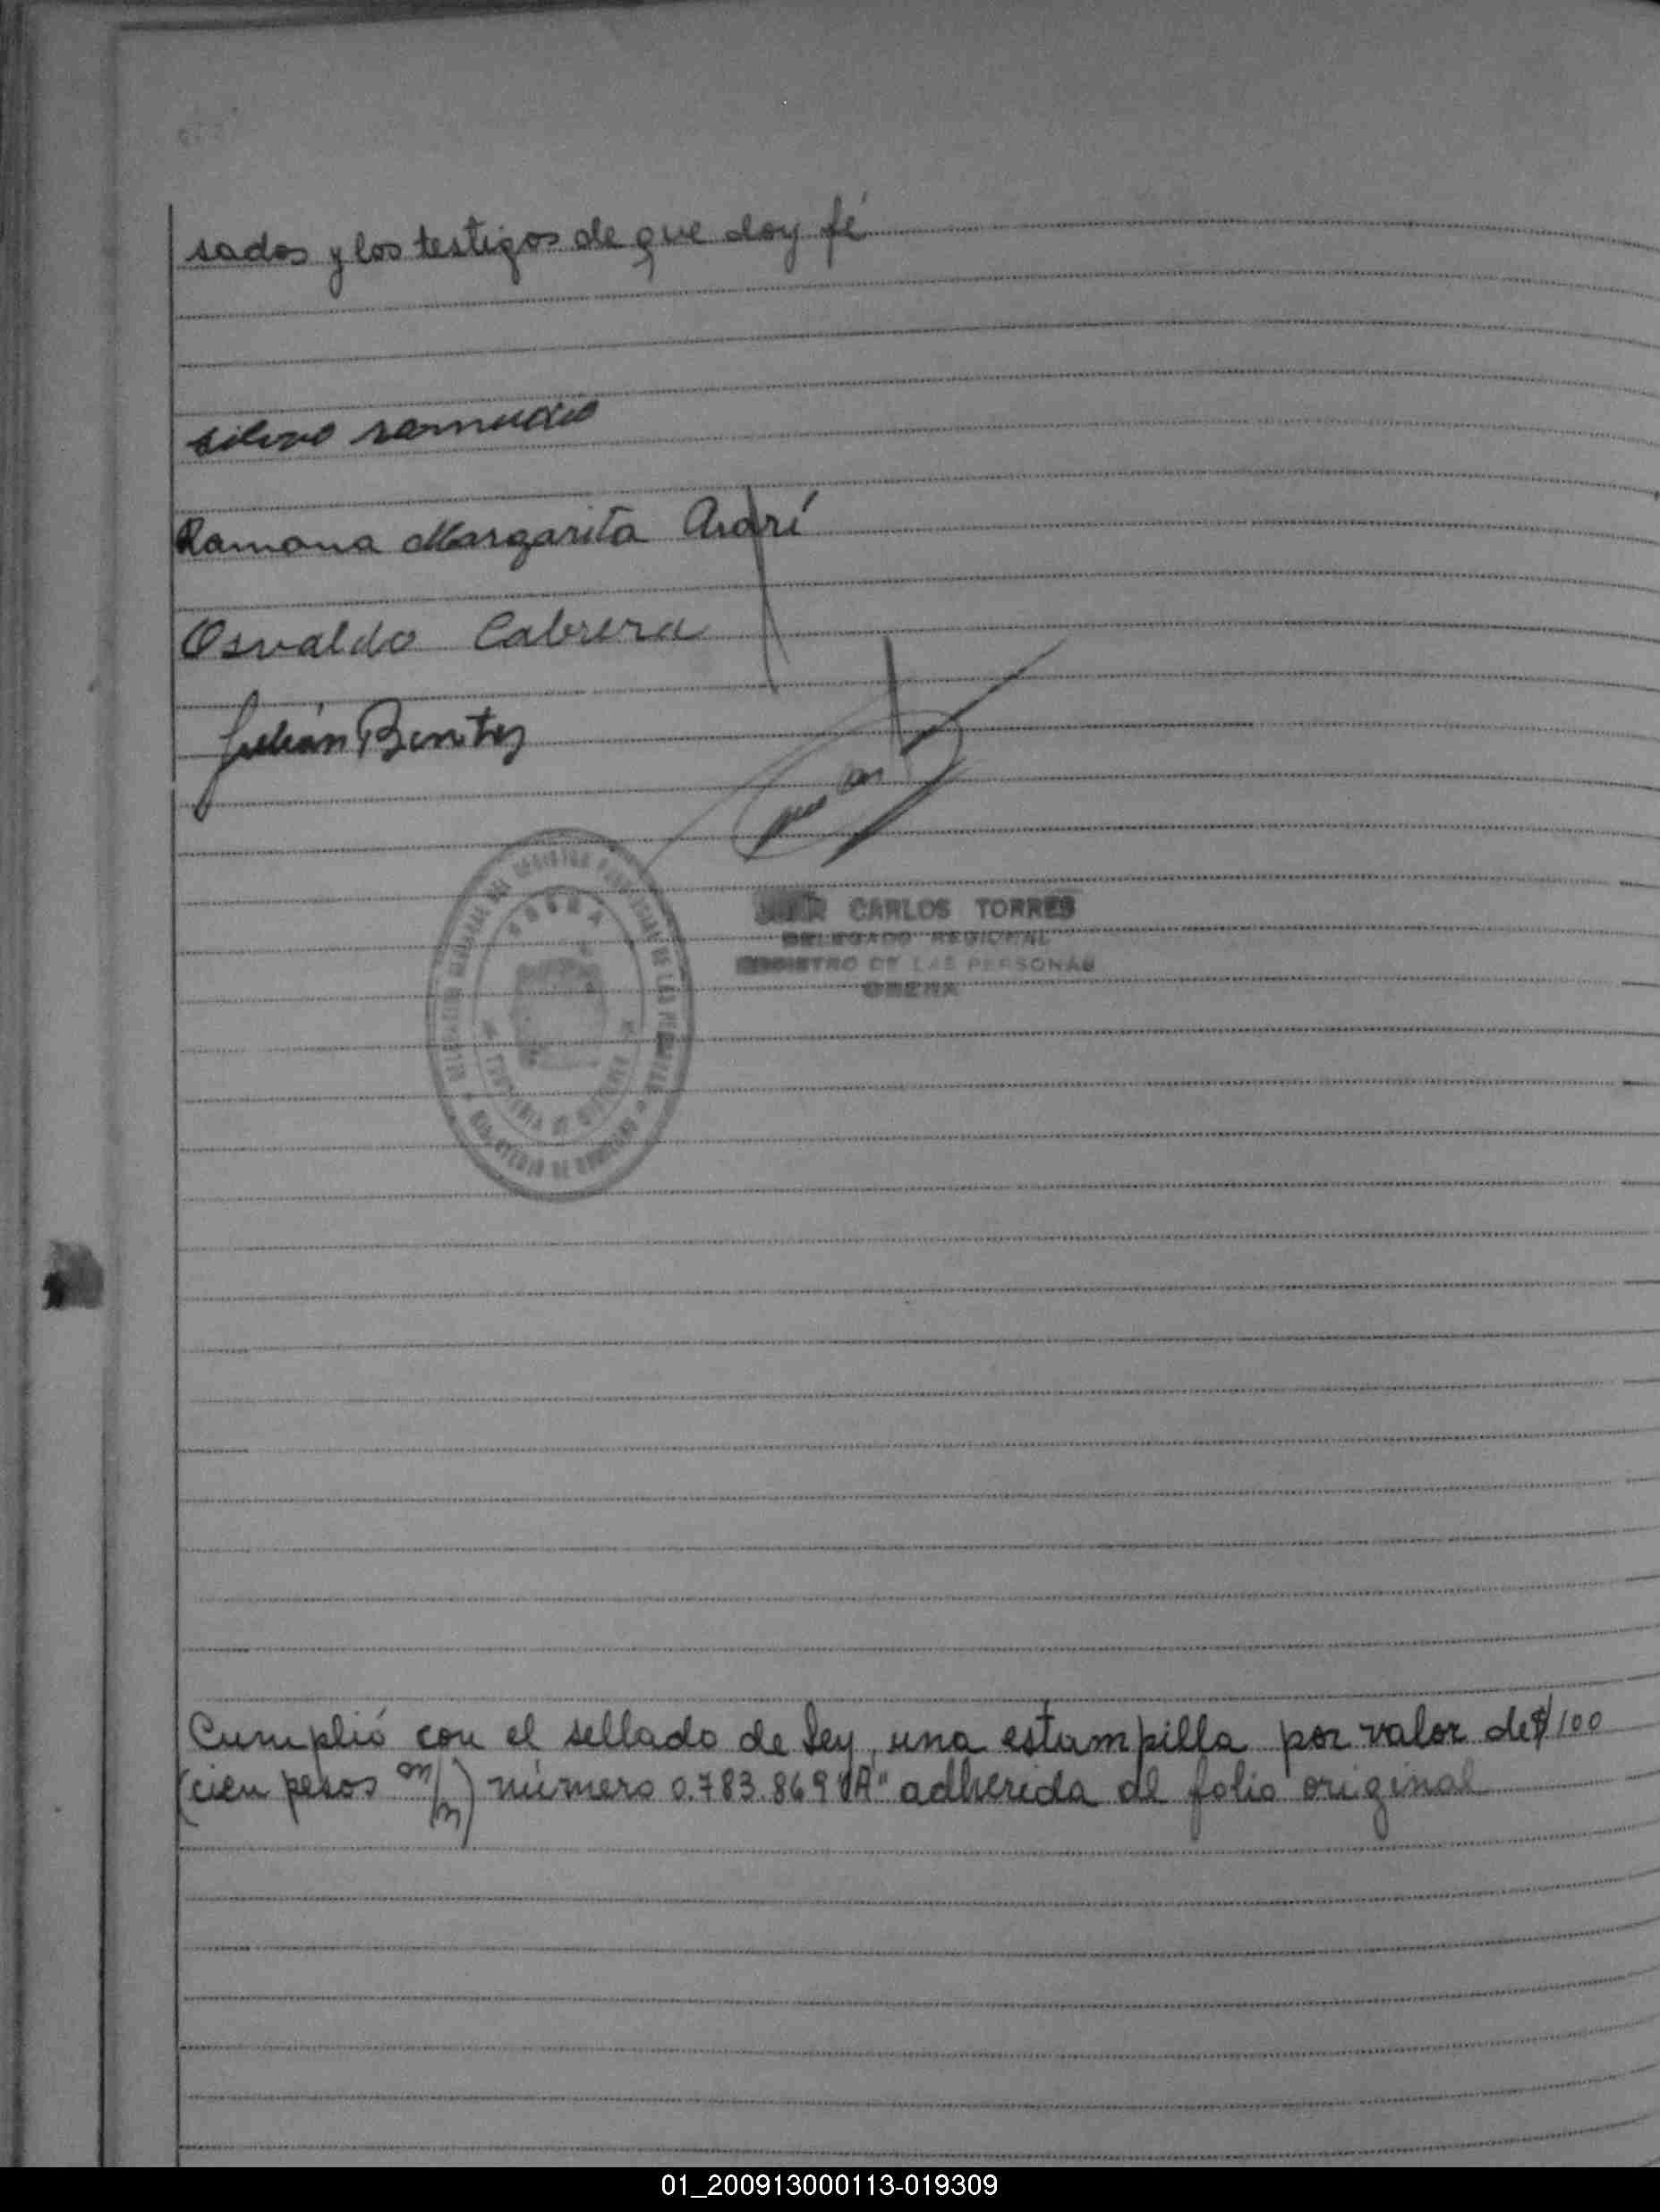 sados y los testigos de que doy fé
Ramona Margarita
Osvaldo Cabrera
Julián Benitez
CARLOS TORRES
DELEGADO REGIONAL
REGISTRO DE LAS PERSONAS
OBERA
OBERA
PROVINCIA DE MISIONES
MINISTERIO DE GOBIERNO
Cumplió con el sellado de Ley, una estampilla por valor de $100
(cien pesos m/n) número 0.783.869 "A" adherida al folio original
01_200913000113-019309